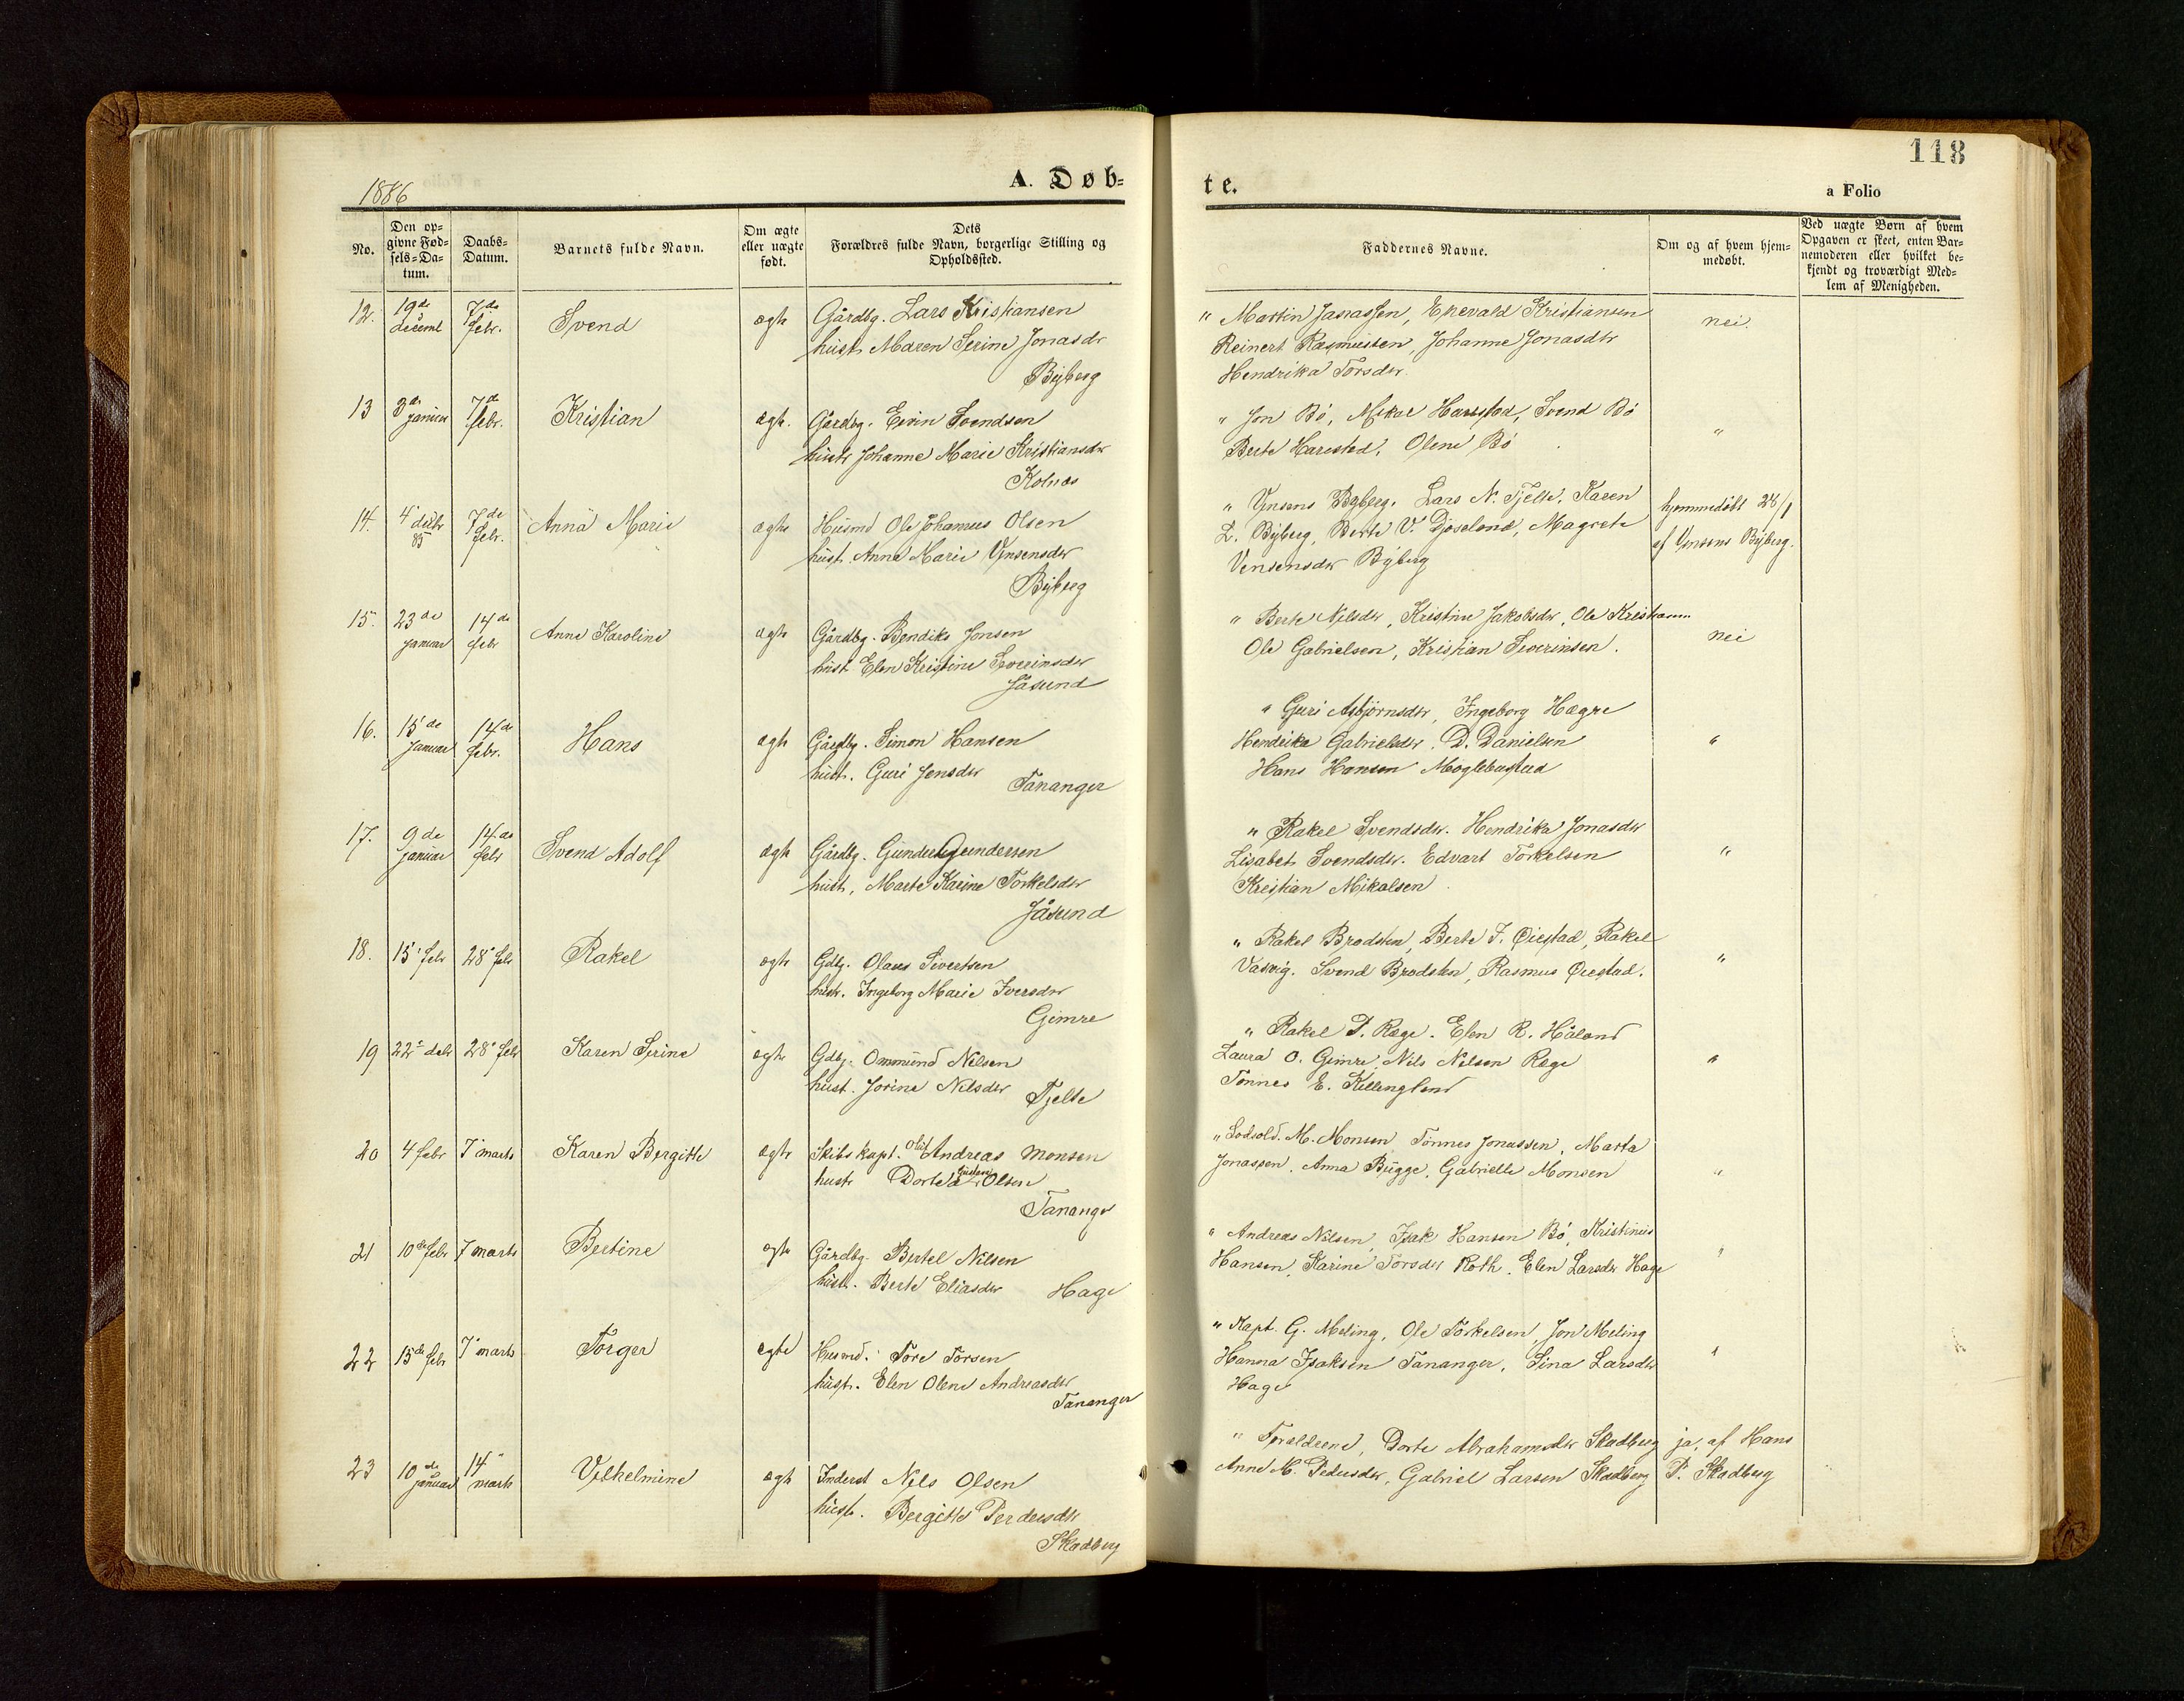 118
1886
A. Døb-
te.
a Folio
No.
Den op-
givne Fød-
sels-Da-
tum.
Daabs-
Datum.
Barnets fulde Navn.
Om ægte
eller uægte
født.
Dets
Forældres fulde Navn, borgerlige Stilling og
Opholdssted.
Faddernes Navne.
Om og af hvem hjem-
medøbt.
Ved uægte Børn af hvem
Opgaven er skeet, enten Bar-
nemoderen eller hvilket be-
kjendt og troværdigt Med-
lem af Menigheden.
12. 19de decemb 7de febr. Svend ægte Gårdbg. Lars Kristiansen
hustr Maren Serine Jonasdr
Byberg
" Martin Jonassen, Enevald Kristiansen
Reinert Rasmussen, Johanne Jonasdtr
Hendrika Torsdtr.
nei.
13 3de januar 7de febr. Kristian ægte. Gårdbg. Eivin Svendsen
hustr Johanne Marie Kristiansdtr
Kolnæs
" Jon Bö, Mikal Harestad, Svend Bö
Berte Harestad, Olene Bö
"
14. 4de debr 85 7de febr. Anna Marie ægte Husmd Ole Johannes Olsen
hustr. Anne Marie Vensensdtr
Byberg
" Vensens Byberg. Lars N. Tjelte, Karen
L. Byberg, Berte V. Djoseland, Magrete
Vensensdtr Byberg
hjemmedöbt 28/1
af Vensens Byberg.
15. 23de januar 14de febr Anne Karoline ægte Gårdbg. Bendiks Jonsen
hust Elen Kristine Severinsdtr
Jåsund
" Berte Nilsdtr, Kristine Jakobsdtr, Ole Kristiansen
Ole Gabrielsen, Kristian Severinsen.
nei
16. 15de januar 14de febr. Hans ægte Gårdbg. Simon Hansen
hust. Guri Jensdtr
Tananger
" Guri Asbjörnsdtr, Ingeborg Hægre
Hendrika Gabrielsdtr. D. Danielsen
Hans Hansen Moglebustad
"
17. 9de januar 14de febr Svend Adolf ægte Gårdbg. Gunder Gundersen
hustr, Marte Karine Torkelsdtr
Jåsund
" Rakel Svendsdtr. Hendrika Jonasdtr
Lisabet Svendsdtr. Edvart Torkelsen
Kristian Mikalsen
"
18. 15' febr 28' febr Rakel ægte Gdbg. Olaus Sivertsen
hustr. Ingeborg Marie Iversdtr
Gimre
" Rakel Brodsten, Berte I. Øiestad, Rakel
Vasvig. Svend Brodsten, Rasmus Øiestad.
"
19 22' debr 28' febr Karen Serine ægte Gdbg. Ommund Nilsen
hust. Jorine Nilsdtr
Tjelte
" Rakel T. Ræge. Elen R. Håland
Laura O. Gimre, Nils Nilsen Ræge
Tönnes E. Kellingland
"
20 4 febr 7' marts Karen Bergitte ægte Skibskapt. Olai Andreas Monsen
hustr Dortea Olsen
Tananger
" Lodsold. M. Monsen Tönnes Jonassen, Marta
Jonassen. Anna Bugge, Gabrielle Monsen
"
21 10de febr 7 marts Bertine ægte Gårdbg. Bertel Nilsen
hustr. Berte Eliasdtr
Hage
" Andreas Nilsen, Isak Hansen Bö, Kristinius
Hansen, Karine Torsdtr Roth. Elen Larsdtr Hage
"
22 15de febr 7' marts Torger ægte Husmd. Tore Torsen
hustr. Elen Olene Andreasdtr
Tananger
" Kapt. G. Meling, Ole Torkelsen, Jon Meling
Hanna Isaksen Tananger, Sina Larsdtr
Hage
"
23 10de januar 14' marts Vilhelmine ægte Inderst Nels Olsen
hustr. Bergitte Perdersdtr
Skadberg
" Forældrene, Dorte Abrahamsdtr Skadberg
Anne M. Pedersdtr, Gabriel Larsen Skadberg
ja, af Hans
P. Skadberg